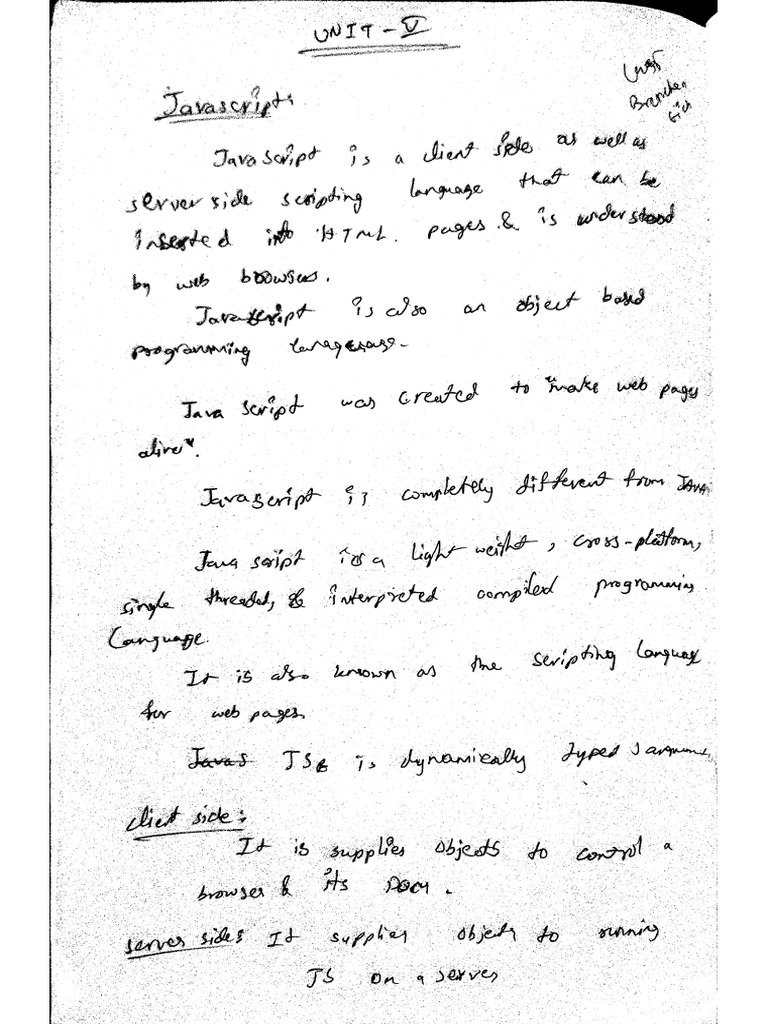 UNIT - V
Javascript:
JavaScript is a client side as well as
server side scripting language that can be
inserted into HTML pages & is understood
by web browsers.
Javascript is also an object based
programming langeuage.
Java script was created to "make web pages
alive".
Javascript is completely different from JAVA
Java script is a light weight, cross-platform,
single threaded, & interpreted compiled programming
Language.
It is also known as the scripting language
for web pages.
Javas JS is dynamically typed
client side:
It is supplies objects to control a
browser & its DOM.
server side: It supplies objects to running
JS on a server